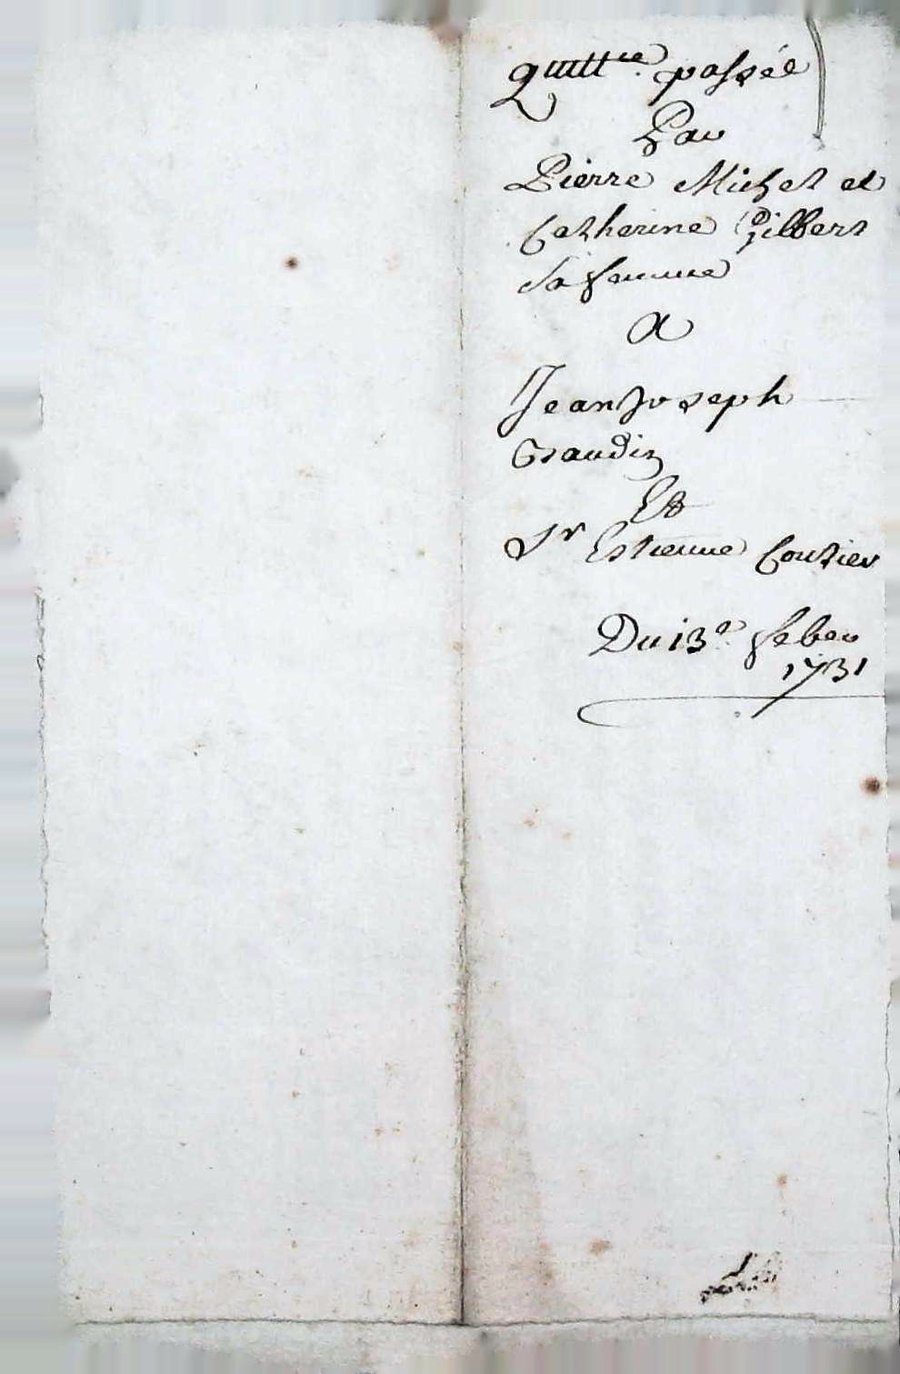 Quittce. passée
Par
Pierre Michet et
Catherine Gilbert
Sa femme
A
Jean Joseph
Graudin
Et
Sr Estienne Coutier
Du 13e. feber
1731